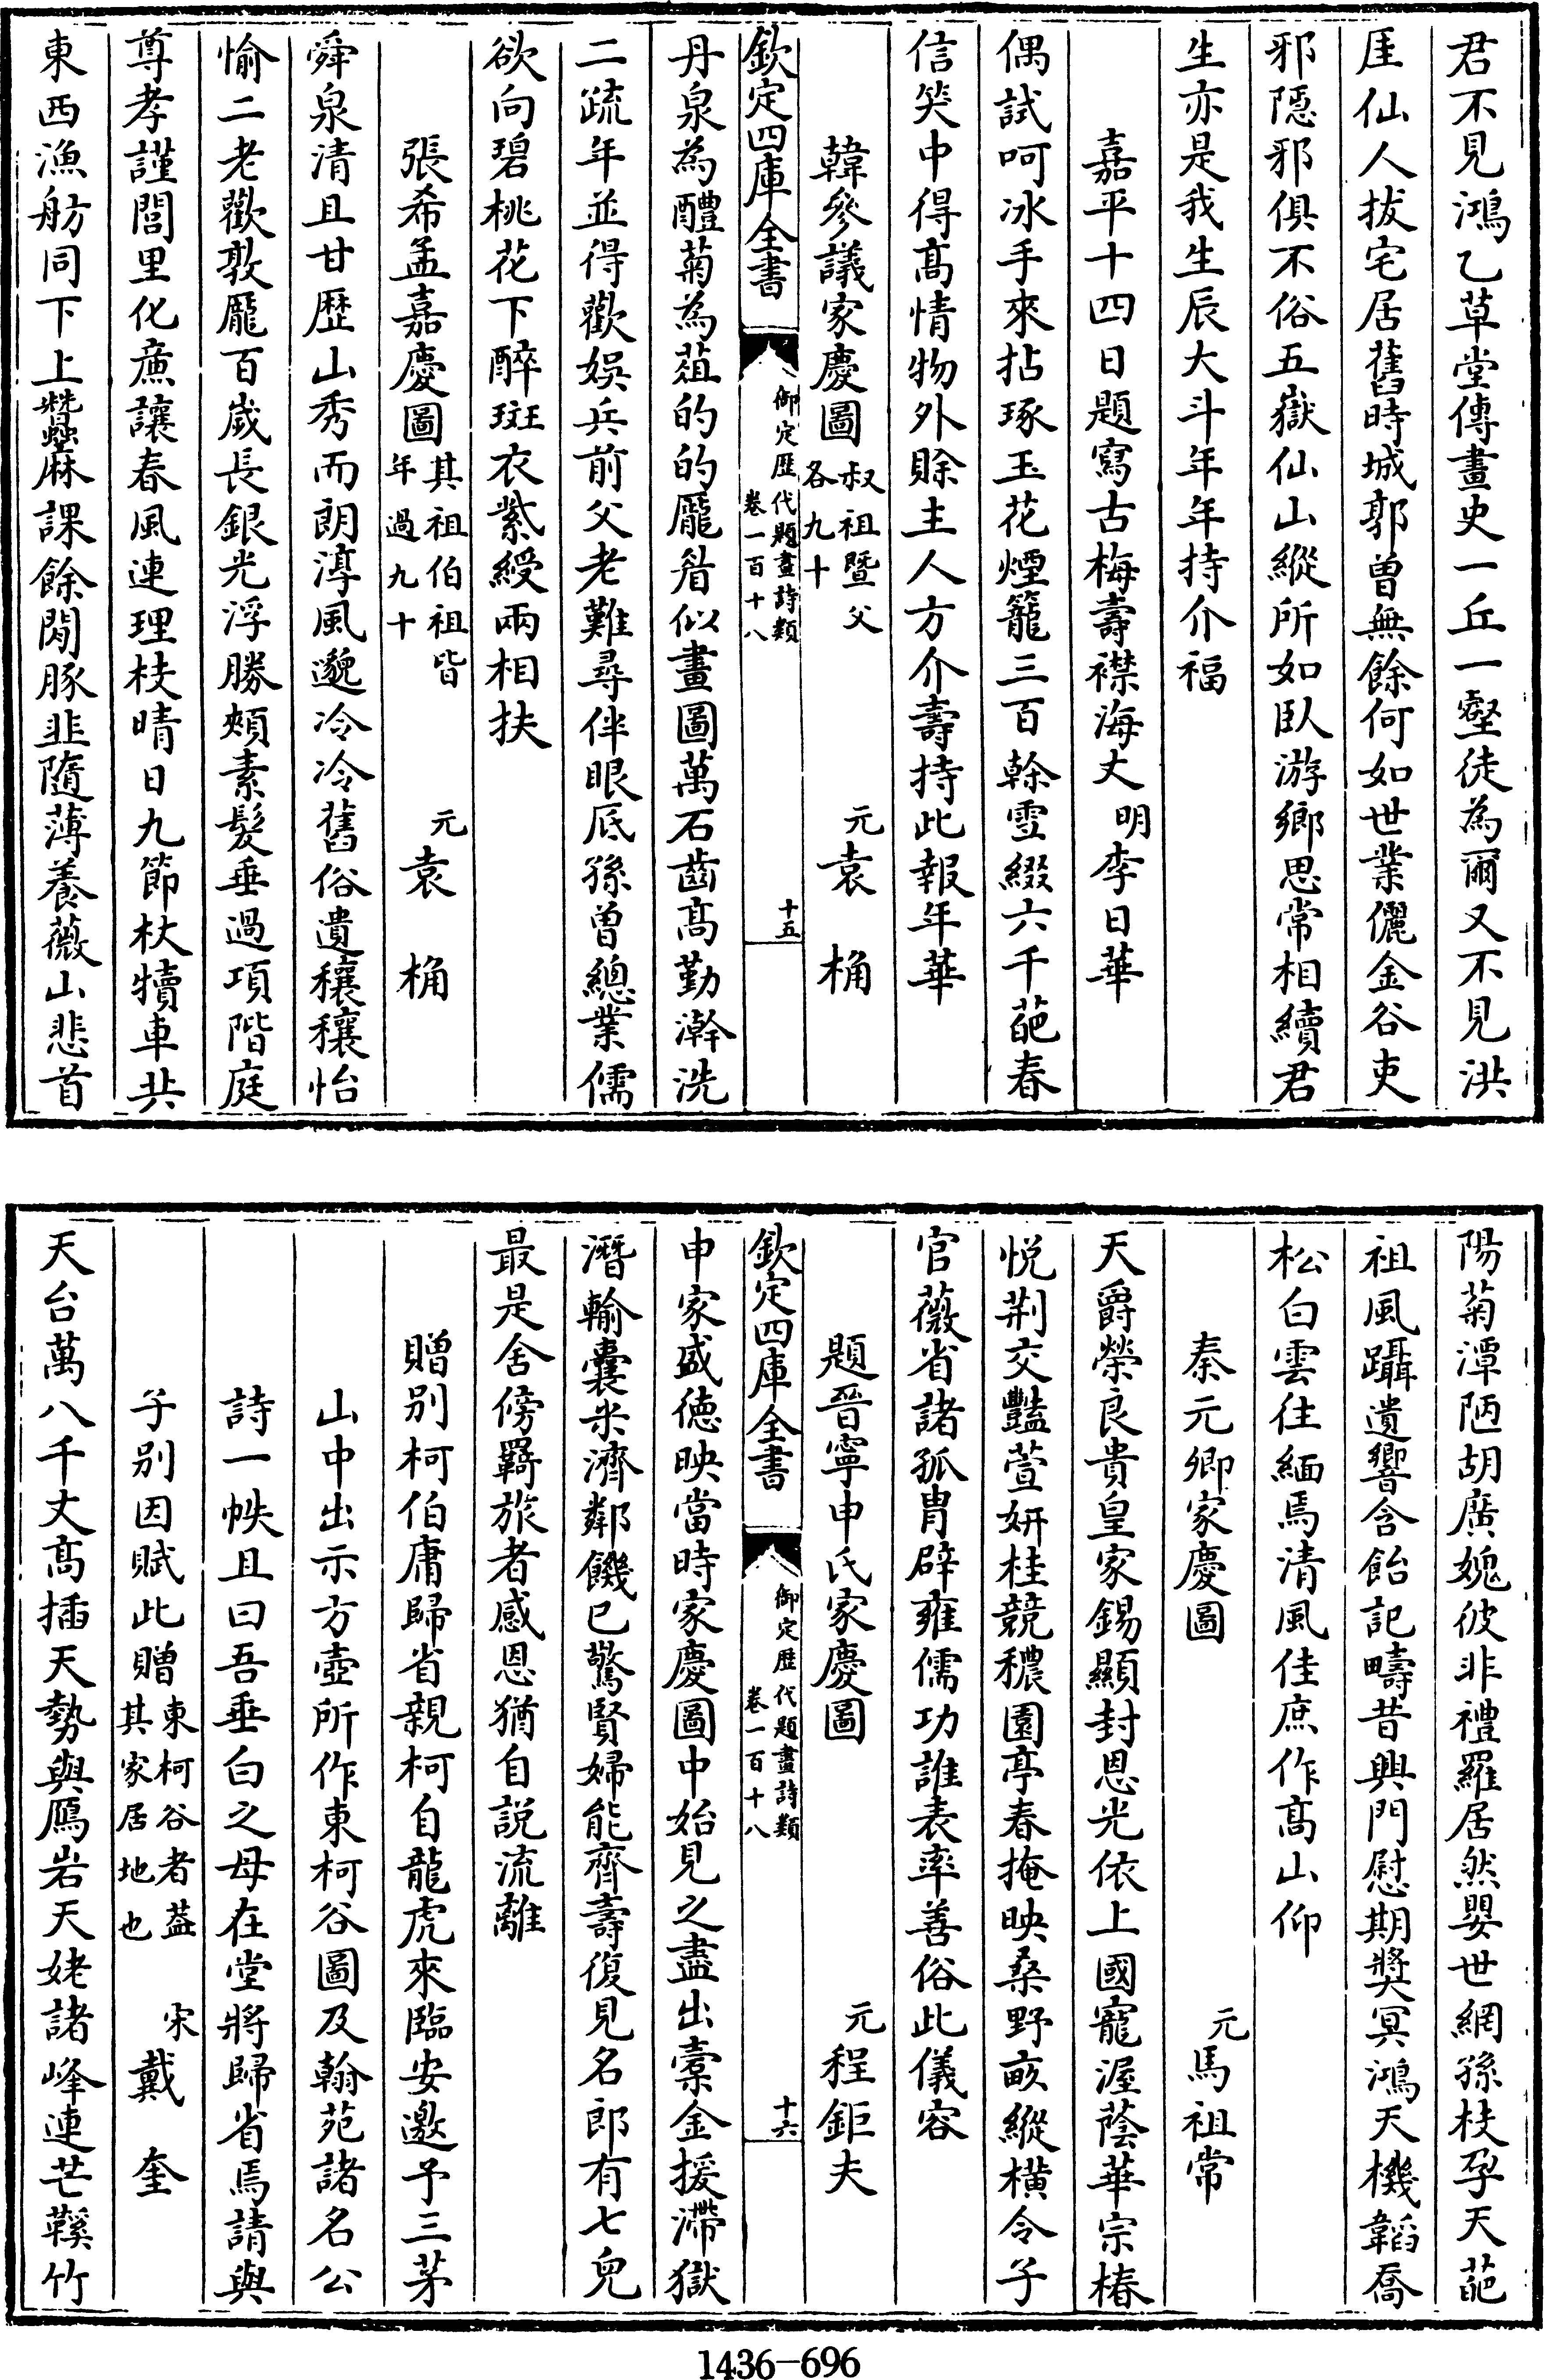 君不見鴻乙草堂傳畫史一丘一壑徒為爾又不見洪
厓仙人拔宅居舊時城郭曾無餘何如世業儷金谷吏
邪隱邪俱不俗五嶽仙山縱所如臥游鄉思常相續君
生亦是我生辰大斗年年持介福
嘉平十四日題寫古梅壽襟海丈 明李日華
偶試呵冰手來拈琢玉花煙籠三百榦雪綴六千葩春
信笑中得髙情物外賖主人方介壽持此報年華
韓參議家慶圖 叔祖暨父各九十 元袁桷
欽定四庫全書 御定歴代題畫詩類 卷一百十八 十五
丹泉為醴菊為葅的的厖眉似畫圖萬石齒髙勤澣洗
二疏年並得歡娛兵前父老難尋伴眼底孫曾總業儒
欲向碧桃花下醉斑衣縈綬兩相扶
張希孟嘉慶圖 其祖伯祖皆年過九十 元袁桷
舜泉清且甘歴山秀而朗淳風邈冷冷舊俗遺穰穰怡
愉二老歡敦厖百歲長銀光浮勝頰素髮垂過項階庭
尊孝謹閭里化亷讓春風連理枝晴日九節杖犢車共
東西漁舫同下上蠶麻課餘閒豚韭隨薄養薇山悲首
陽菊潭陋胡廣媿彼非禮羅居然嬰世網孫枝孕天葩
祖風躡遺響含飴記疇昔興門慰期奬冥鴻天機韜喬
松白雲往緬焉清風佳庶作髙山仰
秦元卿家慶圖 元馬祖常
天爵榮良貴皇家錫顯封恩光依上國寵渥蔭華宗椿
悦荆交豔萱妍桂競穠園亭春掩映桑野畝縱横令子
官薇省諸孤胄辟雍儒功誰表率善俗此儀容
題晉寧申氏家慶圖 元程鉅夫
欽定四庫全書 御定歴代題畫詩類 卷一百十八 十六
申家盛德映當時家慶圖中始見之盡出橐金援滯獄
潛輸囊米濟鄰饑已驚賢婦能齊壽復見名郎有七兒
最是舍傍羇旅者感恩猶自説流離
贈别柯伯庸歸省親柯自龍虎來臨安邀予三茅
山中出示方壺所作東柯谷圖及翰苑諸名公
詩一帙且曰吾垂白之母在堂將歸省焉請與
子别因賦此贈 東柯谷者葢其家居地也 宋戴奎
天台萬八千丈髙插天勢與鴈岩天姥諸峰連芒鞵竹
1436-696